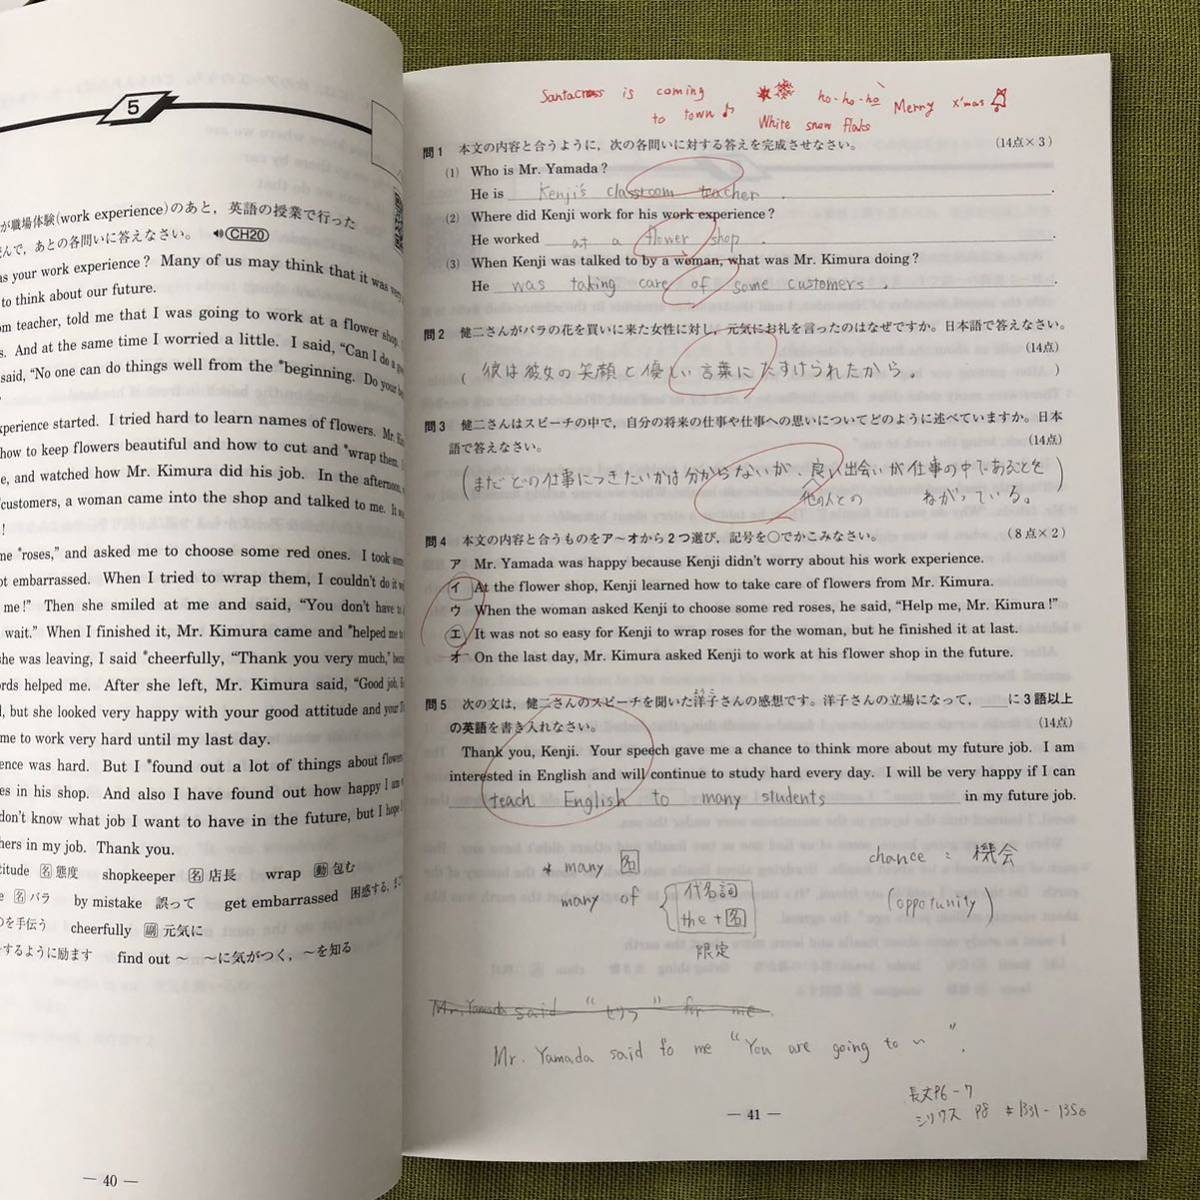 5
が職場体験(work experience)のあと，英語の授業で行った
んで，あとの各問いに答えなさい。 CH20
as your work experience? Many of us may think that it was
to think about our future.
om teacher, told me that I was going to work at a flower shop.
s. And at the same time I worried a little. I said, “Can I do a
said, “No one can do things well from the *beginning. Do your
experience started. I tried hard to learn names of flowers. Mr.
how to keep flowers beautiful and how to cut and *wrap them.
e, and watched how Mr. Kimura did his job. In the afternoon,
*customers, a woman came into the shop and talked to me. It
!
me *roses,” and asked me to choose some red ones. I took
ot embarrassed. When I tried to wrap them, I couldn’t do it
me!” Then she smiled at me and said, “You don’t have
wait.” When I finished it, Mr. Kimura came and *helped me
she was leaving, I said *cheerfully, “Thank you very much,”
ords helped me. After she left, Mr. Kimura said, “Good job,
d, but she looked very happy with your good attitude and your
me to work very hard until my last day.
ence was hard. But I *found out a lot of things about
es in his shop. And also I have found out how happy I am
don’t know what job I want to have in the future, but I hope
hers in my job. Thank you.
titude 名 態度 shopkeeper 名 店長 wrap 動 包む
e 名 バラ by mistake 誤って get embarrassed 困惑する，
のを手伝う cheerfully 副 元気に
するように励ます find out ～ ～に気がつく，～を知る
— 40 —
Santacross is coming
to town♪
ho-ho-ho
Merry x'mas
White snow flaks
問1 本文の内容と合うように，次の各問いに対する答えを完成させなさい。 (14点×3)
(1) Who is Mr. Yamada?
He is Kenji's classroom teacher.
(2) Where did Kenji work for his work experience?
He worked at a flower shop.
(3) When Kenji was talked to by a woman, what was Mr. Kimura doing?
He was taking care of some customers.
問2 健二さんがバラの花を買いに来た女性に対し，元気にお礼を言ったのはなぜですか。日本語で答えなさい。
(14点)
( 彼は彼女の笑顔と優しい言葉にたすけられたから。 )
問3 健二さんはスピーチの中で，自分の将来の仕事や仕事への思いについてどのように述べていますか。日本
語で答えなさい。 (14点)
(まだどの仕事につきたいかは分からないが、良い出会いが仕事の中であることを)
他の人との ねがっている。
問4 本文の内容と合うものをア～オから2つ選び，記号を○でかこみなさい。 (8点×2)
ア Mr. Yamada was happy because Kenji didn’t worry about his work experience.
イ At the flower shop, Kenji learned how to take care of flowers from Mr. Kimura.
ウ When the woman asked Kenji to choose some red roses, he said, “Help me, Mr. Kimura!”
エ It was not so easy for Kenji to wrap roses for the woman, but he finished it at last.
オ On the last day, Mr. Kimura asked Kenji to work at his flower shop in the future.
問5 次の文は，健二さんのスピーチを聞いた洋子さんの感想です。洋子さんの立場になって，＿＿に3語以上
の英語を書き入れなさい。 (14点)
Thank you, Kenji. Your speech gave me a chance to think more about my future job. I am
interested in English and will continue to study hard every day. I will be very happy if I can
teach English to many students in my future job.
* many 名
many of { 代名詞
the + 名
限定
chance : 機会
(oppotunity)
Mr. Yamada said “セリフ” for me.
Mr. Yamada said to me “You are going to 〃”.
長文P6-7
シリウス P8 #1331-1350
— 41 —